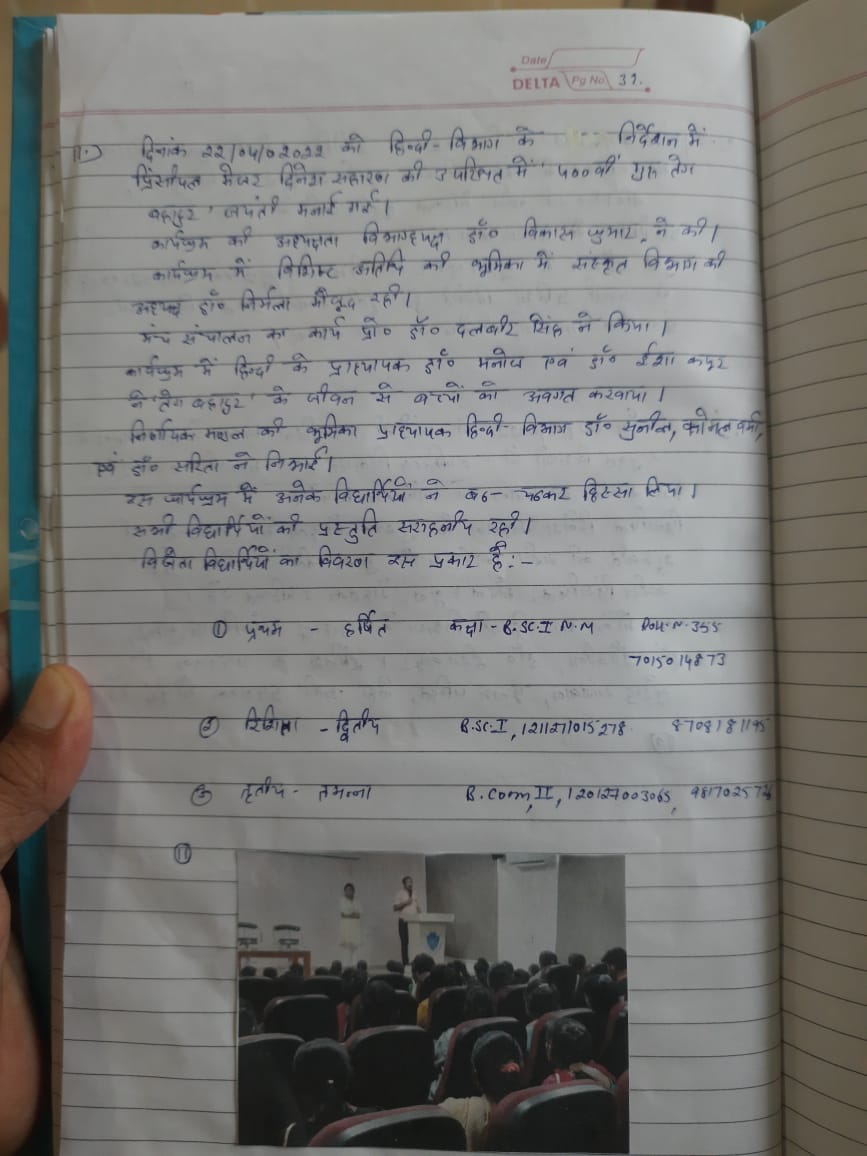 Date
DELTA Pg No 32.
11.) दिनांक 22/04/02022 को हिन्दी-विभाग के निर्देशन में
प्रिंसीपल मेजर दिनेश सहारण की उपस्थित में '400वीं गुरू तेग
बहादुर' जयंती मनाई गई।
कार्यक्रम की अध्यक्षता विभागाध्यक्ष डॉ० विकास कुमार ने की।
कार्यक्रम में विशिष्ट अतिथि की भूमिका में संस्कृत विभाग की
अध्यक्ष डॉ० निर्मला मौजूद रही।
मंच संचालन का कार्य प्रो० डॉ० दलबीर सिंह ने किया।
कार्यक्रम में हिन्दी के प्राध्यापक डॉ० मनोज एवं डॉ० ईशा कपूर
ने 'तेग बहादुर' के जीवन से बच्चों को अवगत करवाया।
निर्णायक मण्डल की भूमिका प्राध्यापक हिन्दी-विभाग डॉ० सुनीत, कोमल वर्मा,
एवं डॉ० सरिता ने निभाई।
इस कार्यक्रम में अनेक विद्यार्थियों ने बढ़-चढ़कर हिस्सा लिया।
सभी विद्यार्थियों की प्रस्तुति सराहनीय रही।
विजेता विद्यार्थियों का विवरण इस प्रकार है:-
① प्रथम - हर्षित कक्षा - B.SC.I N.M Roll.N. 355
7015014873
② द्वितीय B.SC.I, 121127015278 8708181195
③ तृतीय - तमन्ना B.Com, II, 120127003065,
⑪